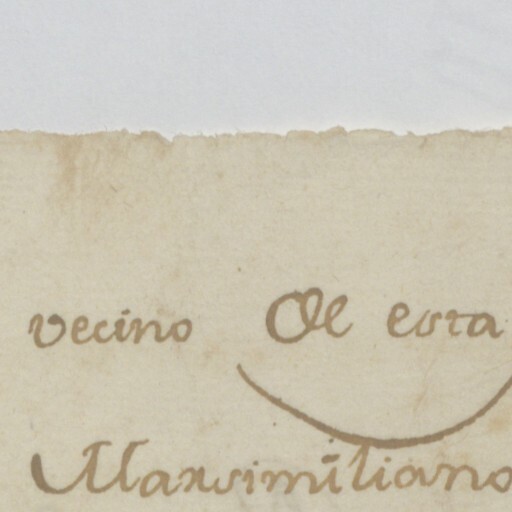 vecino de esta
Marxsimiliano